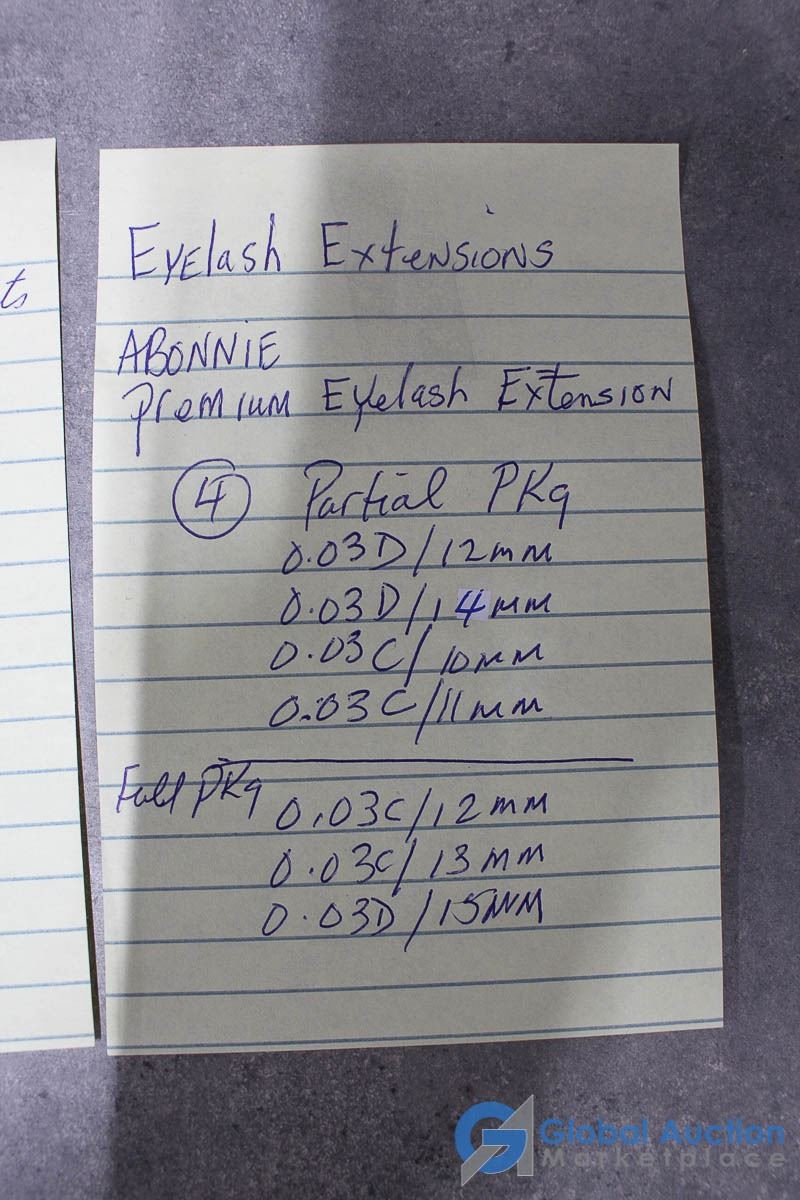 ts
Eyelash Extensions
ABONNIE
Premium Eyelash Extension
4 Partial PKg
0.03D/12mm
0.03D/14mm
0.03C/10mm
0.03C/11mm
Full PKg 0.03C/12mm
0.03C/13mm
0.03D/15mm
Global Auction
Marketplace